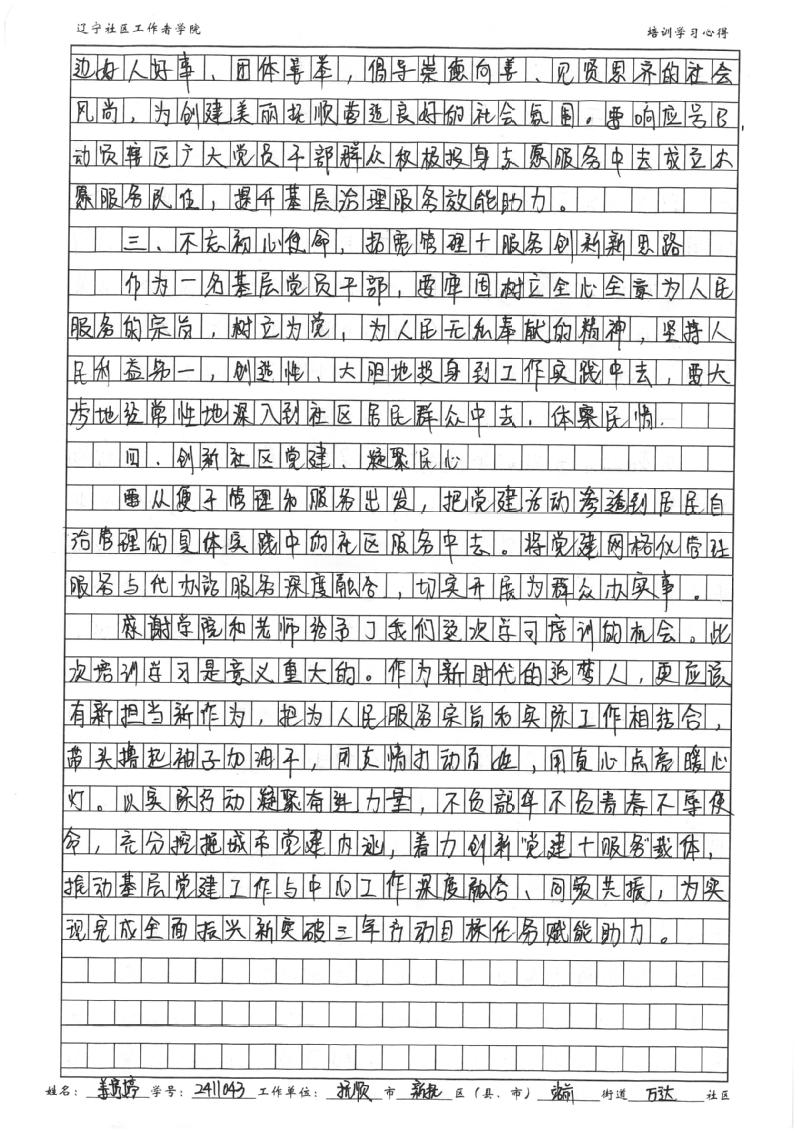 辽宁社区工作者学院 培训学习心得
边好人好事、团体善举，倡导崇德向善、见贤思齐的社会
风尚，为创建美丽抚顺营造良好的社会氛围。要响应号召，
动员辖区广大党员干部群众积极投身志愿服务中去成立志
愿服务队伍，提升基层治理服务效能助力。
三、不忘初心使命，拓宽管理十服务创新新思路
作为一名基层党员干部，要牢固树立全心全意为人民
服务的宗旨，树立为党，为人民无私奉献的精神，坚持人
民利益第一，创造性、大胆地投身到工作实践中去，要大
步地经常性地深入到社区居民群众中去，体察民情.
四、创新社区党建、凝聚民心
要从便于管理和服务出发，把党建活动渗透到居民自
治管理的具体实践中的社区服务中去。将党建网格化管社
服务与代办谘服务深度融合，切实开展为群众办实事。
感谢学院和老师给予了我们这次学习培训的机会。此
次培训学习是意义重大的。作为新时代的追梦人，更应该
有新担当新作为，把为人民服务宗旨和实际工作相结合，
带头撸起袖子加油干，用真情打动百姓，用真心点亮暖心
灯。以实际行动凝聚奋进力量，不负韶华不负青春不辱使
命，充分挖掘城市党建内涵，着力创新"党建十服务"载体，
推动基层党建工作与中心工作深度融合、同频共振，为实
现完成全面振兴新突破三年行动目标任务赋能助力。
姓名： 学号：2411043 工作单位：抚顺 市 新抚 区（县、市） 站前 街道 万达 社区